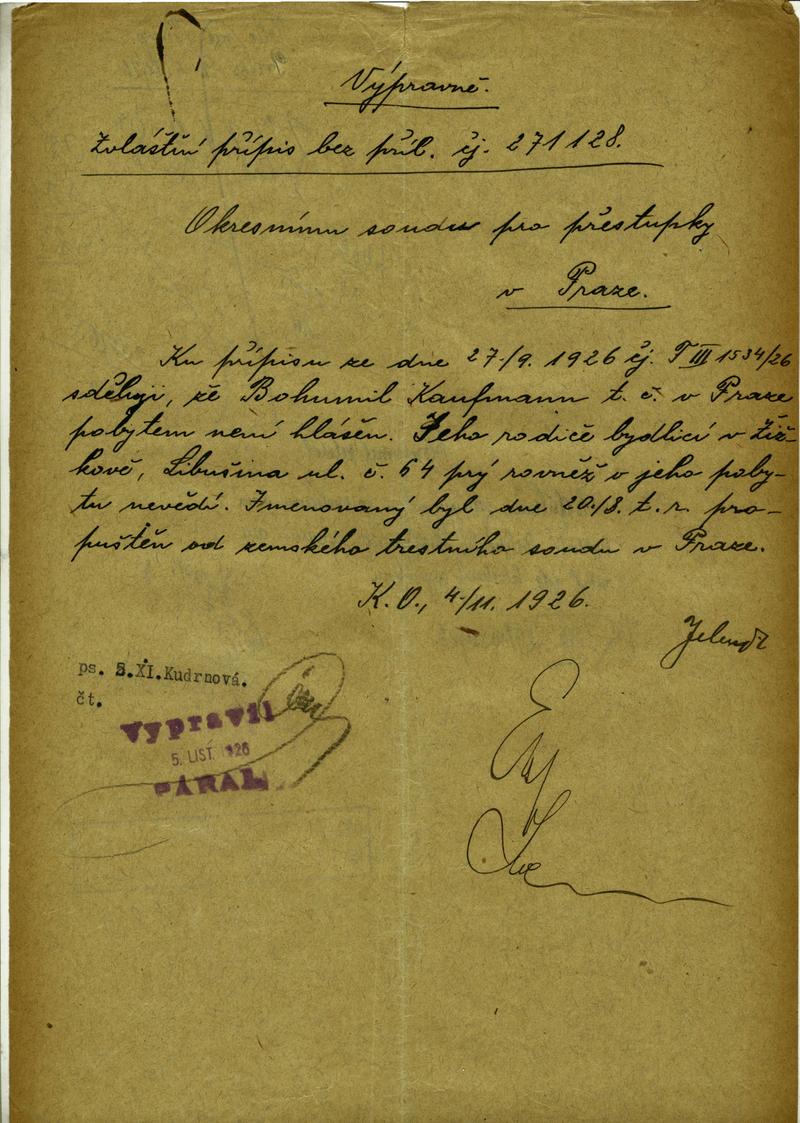 Výpravně.
Zvláštní přípis bez příl. čj. 271128.
Okresnímu soudu pro přestupky
v Praze.
Ku přípisu ze dne 27./9. 1926 čj. T III 1534/26
sděluji, že Bohumil Kaufmann t. č. v Praze
pobytem není hlášen. Jeho rodiče bydlící v Žiž-
kově, Libušina ul. č. 64 prý rovněž v jeho poby-
tu nevědí. Jmenovaný byl dne 20./8. t. r. pro-
puštěn od zemského trestního soudu v Praze.
K. O., 4./11. 1926.
ps. 5.XI.Kudrnová.
čt.
Vypravil
5. LIST. 1926
PÁRAL